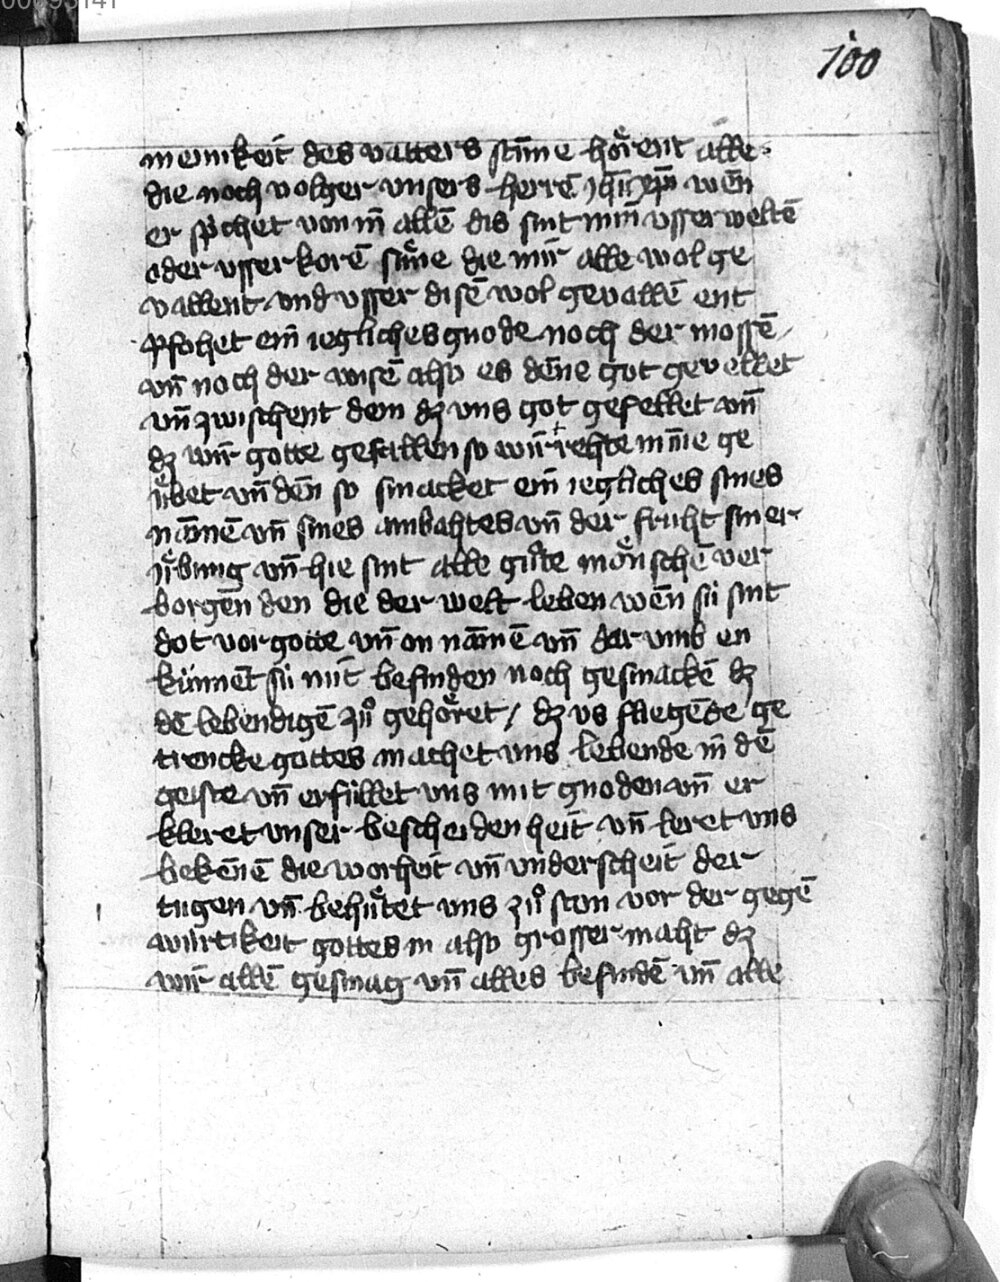 100
meinikeit des vatters stīme hoͤrent alle
die noch volger vnsers herrē jhū xp̄i wēn
er sp̄chet von in̄ allē dis sint min̄ vsserweltē
oder vsserkorē süne die mir alle wol ge
vallent vnd vsser disē wol gevallē ent
pfohet ein̄ iegliches gnode noch der mossē
vn̄ noch der wisē also es dēne got gevellet
vn̄ zwischent dem dz vns got gefellet vn̄
dz wir gotte gefallen so wirt rehte mīne ge
uͤbet vn̄ den̄ so smacket ein̄ iegliches sines
nāmē vn̄ sines ambahtes vn̄ der fruht siner
uͤbung vn̄ hie sint alle guͦte moͤnschē ver
borgen den die der welt leben wēn sü sint
dot vor gotte vn̄ on nāmē vn̄ dar vmb en
künnēt sü nüt befinden noch gesmackē dz
dē lebendigē zuͦ gehoͤret / dz vs fliegēde ge
trencke gottes machet vns lebende in dē
geiste vn̄ erfüllet vns mit gnoden vn̄ er
kleret vnser bescheidenheit vn̄ leret vns
bekēnē die worheit vn̄ vnderscheit der
tugen vn̄ behuͤtet vns zuͦ ston vor der gegē
würtikeit gottes in also grosser maht dz
wir allē gesmag vn̄ alles befindē vn̄ alle